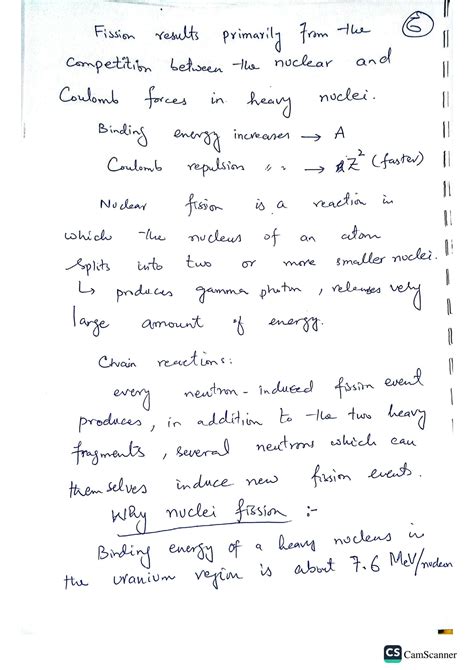 6
Fission results primarily from the
competition between the nuclear and
Coulomb forces in heavy nuclei.
Binding energy increases → A
Coulomb repulsion " " → Z² (faster)
Nuclear fission is a reaction in
which the nucleus of an atom
splits into two or more smaller nuclei.
↳ produces gamma photon, releases very
large amount of energy.
Chain reactions:
every neutron-induced fission event
produces, in addition to the two heavy
fragments, several neutrons which can
themselves induce new fission events.
Why nuclei fission :-
Binding energy of a heavy nucleus in
the uranium region is about 7.6 MeV/nucleon
CS CamScanner